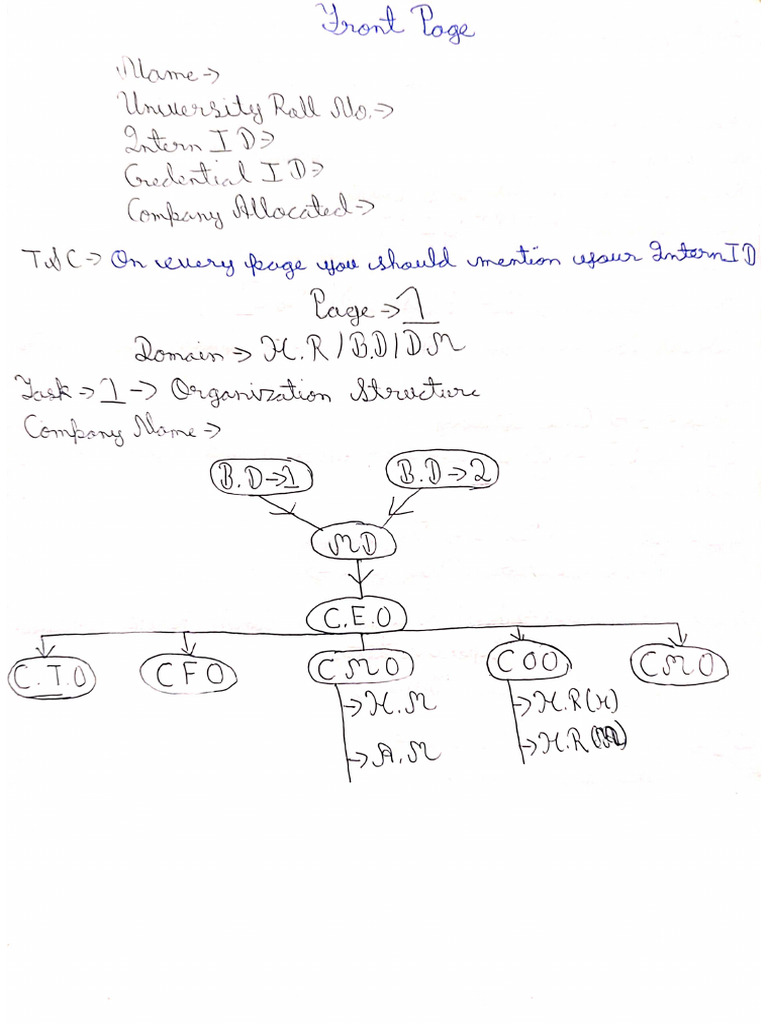 Front Page
Name →
University Roll No. →
Intern ID →
Credential ID →
Company Allocated →
T&C → On every page you should mention your Intern ID
Page → 1
Domain → H.R / B.D / D.M
Task → 1 → Organization Structure
Company Name →
B.D → 1 B.D → 2
MD
C.E.O
C.T.O CFO CMO COO CMO
→ H.M → H.R (H)
→ A.M → H.R